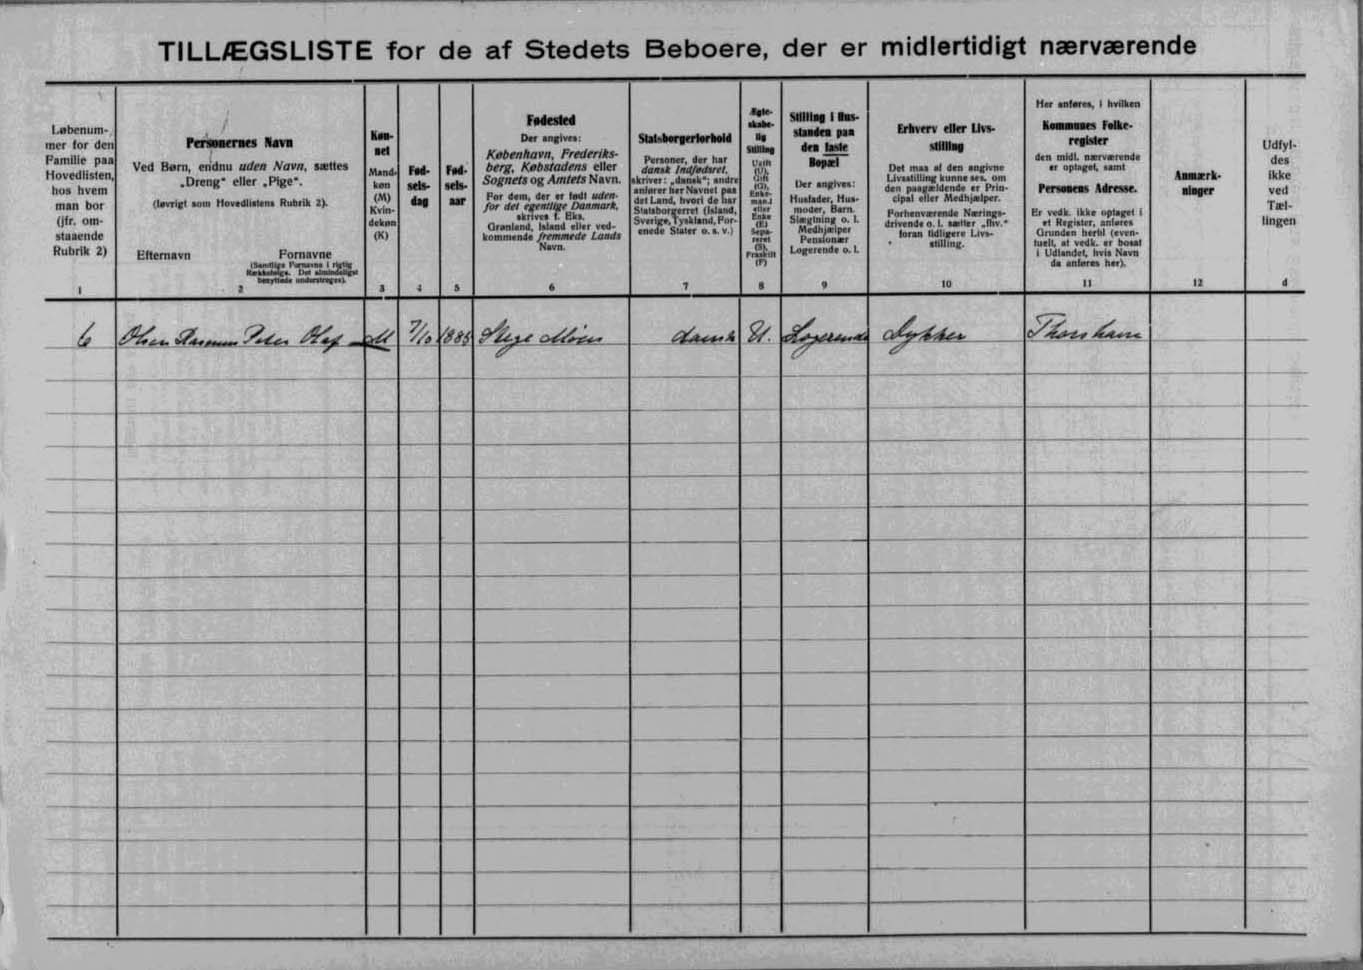 TILLÆGSLISTE for de af Stedets Beboere, der er midlertidigt nærværende
Løbenum-
mer for den
Familie paa
Hovedlisten,
hos hvem
man bor
(jfr. om-
staaende
Rubrik 2)
1
Personernes Navn
Ved Børn, endnu uden Navn, sættes
„Dreng“ eller „Pige“.
(Iøvrigt som Hovedlistens Rubrik 2).
Efternavn Fornavne
(Samtlige Fornavne i rigtig
Rækkefølge. Det almindeligst
benyttede understreges).
2
Køn-
net
Mand-
køn
(M)
Kvin-
dekøn
(K)
3
Fød-
sels-
dag
4
Fød-
sels-
aar
5
Fødested
Der angives:
København, Frederiks-
berg, Købstadens eller
Sognets og Amtets Navn.
For dem, der er født uden-
for det egentlige Danmark,
skrives f. Eks.
Grønland, Island eller ved-
kommende fremmede Lands
Navn.
6
Statsborgerforhold
Personer, der har
dansk Indfødsret,
skriver: „dansk“; andre
anfører her Navnet paa
det Land, hvori de har
Statsborgerret (Island,
Sverige, Tyskland, For-
enede Stater o. s. v.)
7
Ægte-
skabe-
lig
Stilling
Ugift
(U),
Gift
(G),
Enke-
mand
eller
Enke
(E)
Sepa-
reret
(S),
Fraskilt
(F)
8
Stilling i Hus-
standen paa
den faste
Bopæl
Der angives:
Husfader, Hus-
moder, Barn,
Slægtning o. l.
Medhjælper
Pensionær
Logerende o. l.
9
Erhverv eller Livs-
stilling
Det maa af den angivne
Livsstilling kunne ses, om
den paagældende er Prin-
cipal eller Medhjælper.
Forhenværende Nærings-
drivende o. l. sætter „fhv.“
foran tidligere Livs-
stilling.
10
Her anføres, i hvilken
Kommunes Folke-
register
den midl. nærværende
er optaget, samt
Personens Adresse.
Er vedk. ikke optaget i
et Register, anføres
Grunden hertil (even-
tuelt, at vedk. er bosat
i Udlandet, hvis Navn
da anføres her).
11
Anmærk-
ninger
12
Udfyl-
des
ikke
ved
Tæl-
lingen
d
6 Olsen Rasmus Peter Olaf M 7/10 1885 Stege Møen dansk U. Logerende Dykker Thorshavn